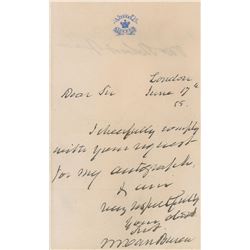 London
Dear Sir June 17th
55.
I cheerfully comply
with your request
for my autograph.
& am
very respectfully
Your obdt
Svt
M Van Buren